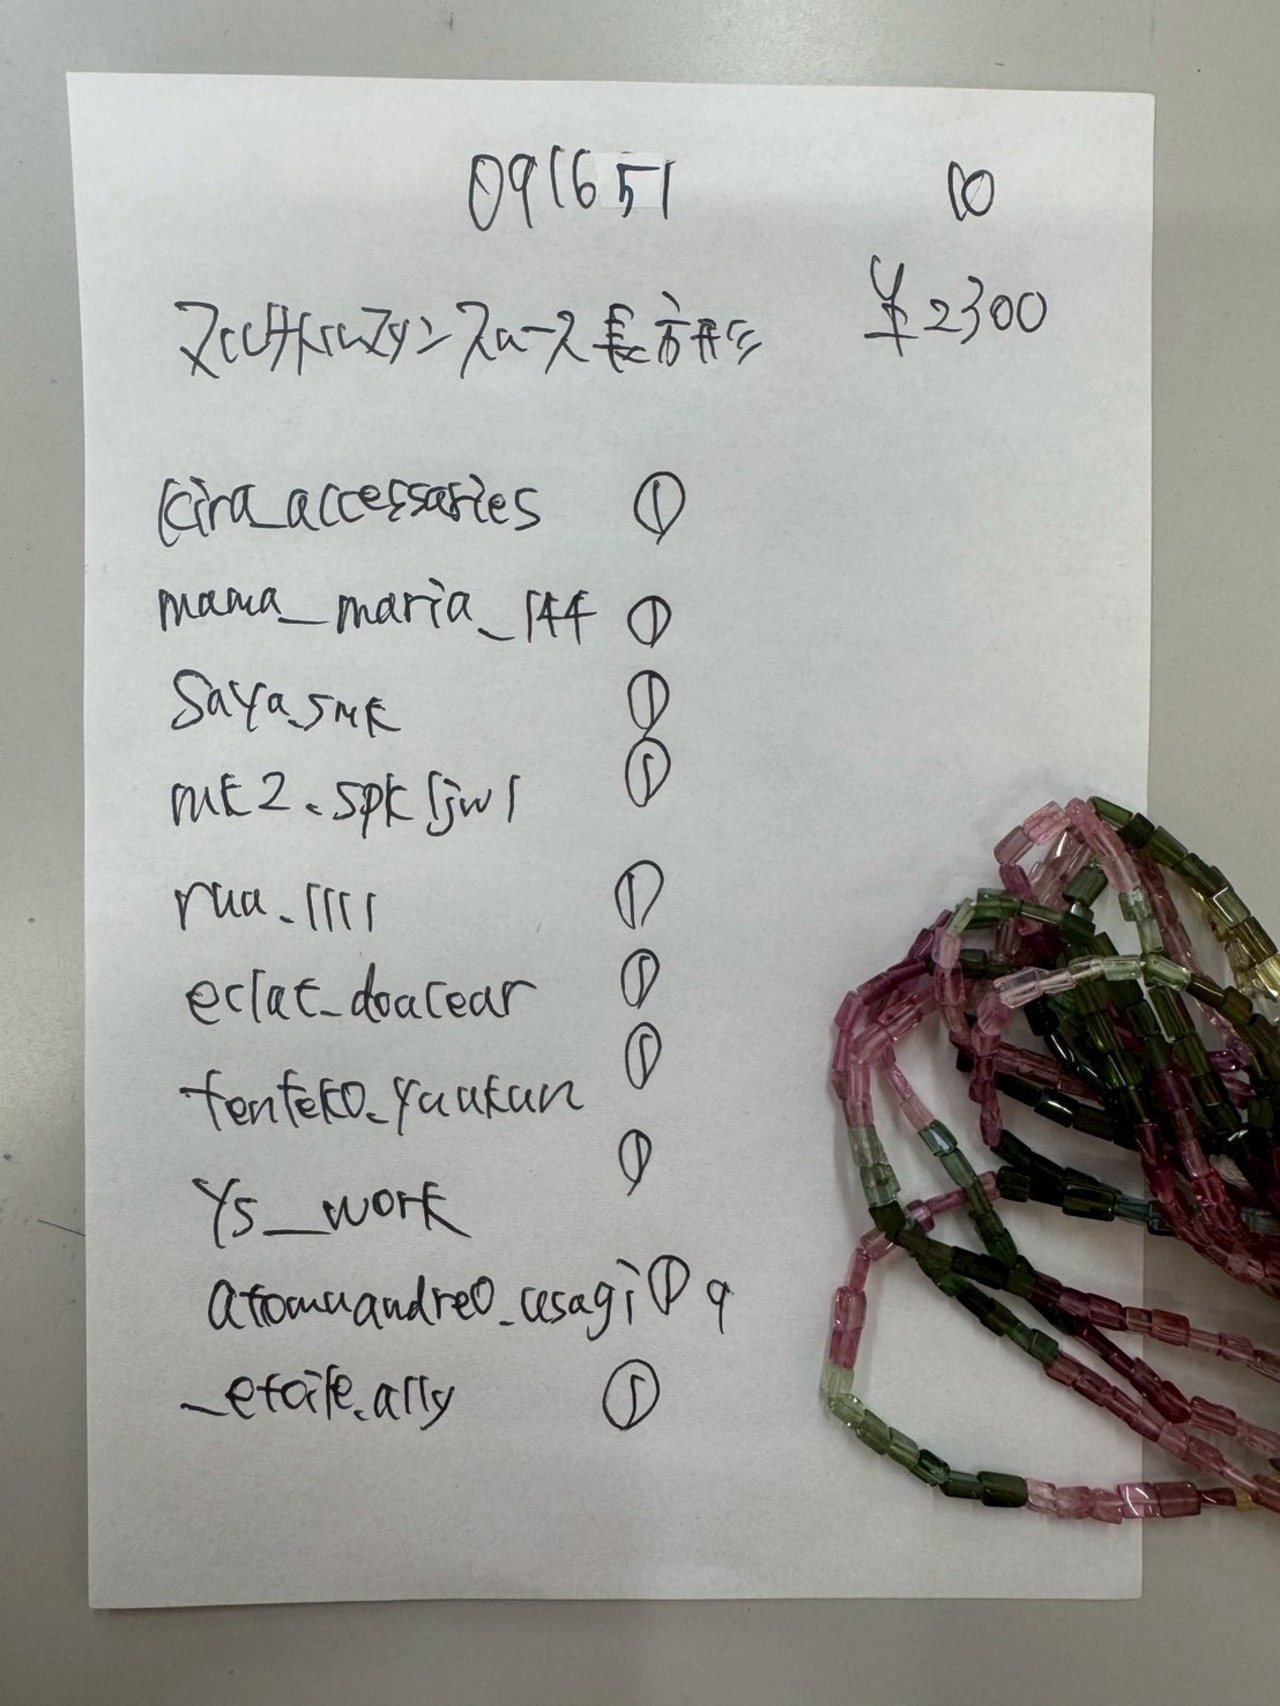 091651 10
マルチトルマリンスムース長方形 ¥2300
kira_accessories ①
mama_maria_144 ①
saya.smk ①
mk2.spkljw1 ①
rua_1111 ①
eclat_douceur ①
tenteko_yuukun ①
ys__work ①
atomuandre0_usagi ① 9
_etoile.ally ①